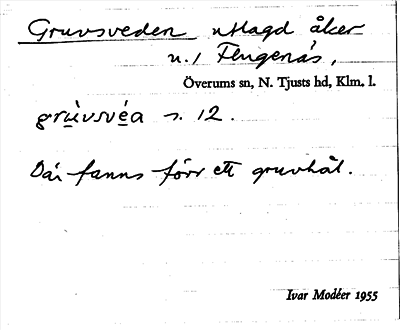 Gruvsveden utlagd åker
u. / Flugenäs,
Överums sn, N. Tjusts hd, Klm. l.
grùvsvéa s. 12.
Där fanns förr ett gruvhål.
Ivar Modéer 1955